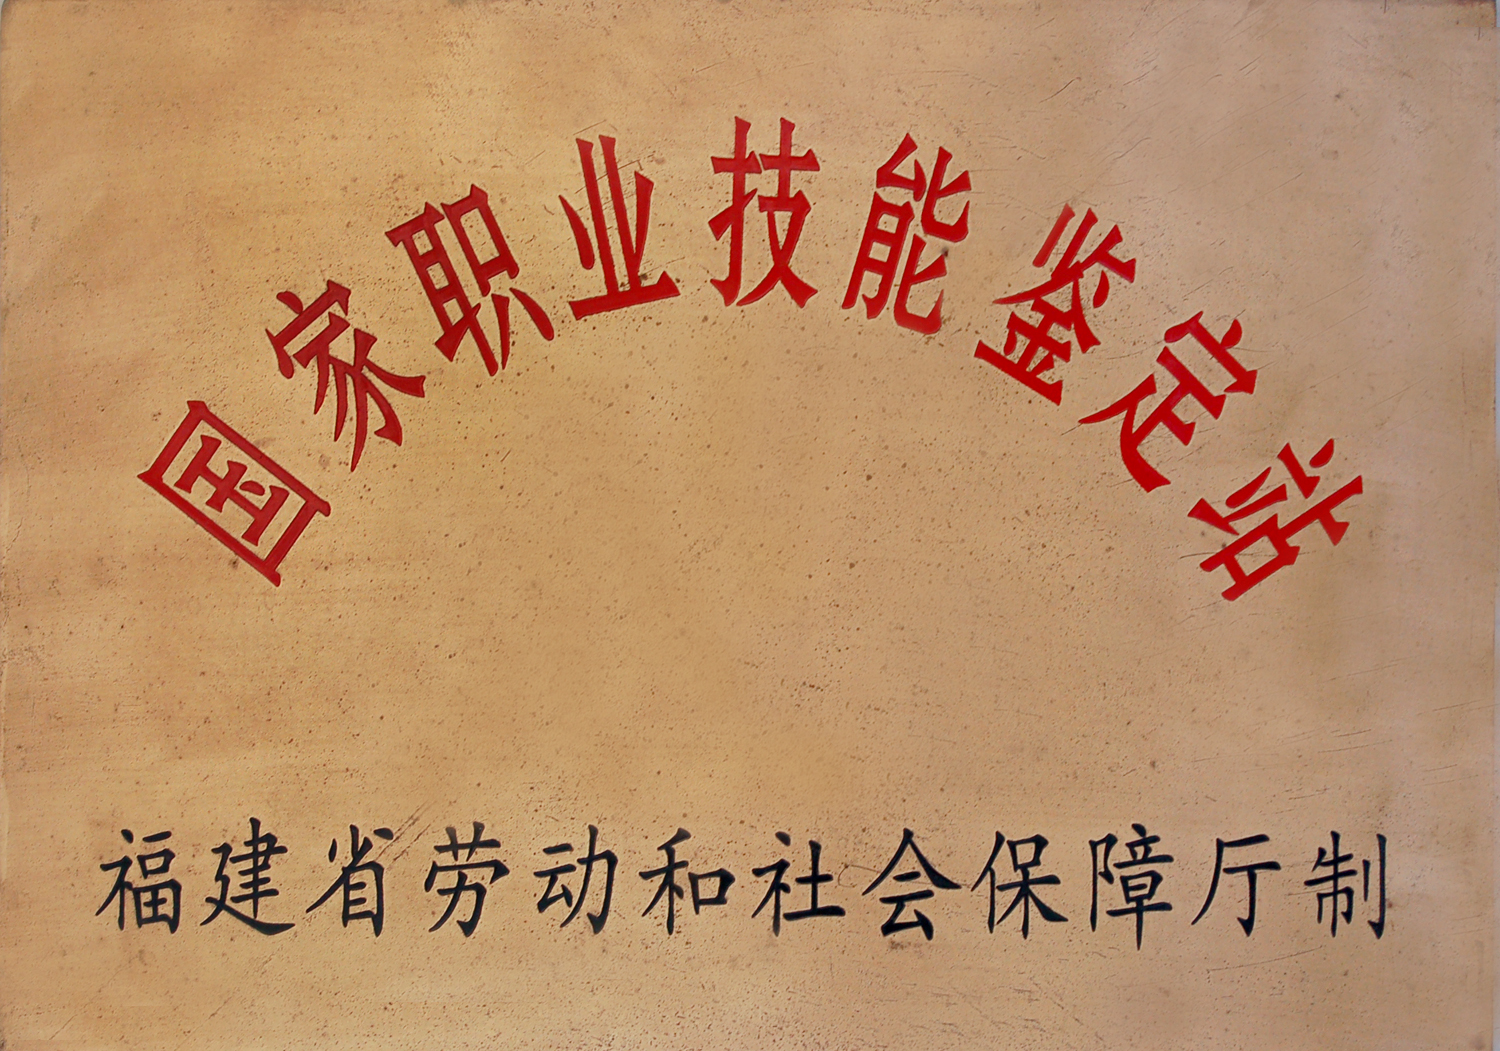 国家职业技能鉴定站
福建省劳动和社会保障厅制